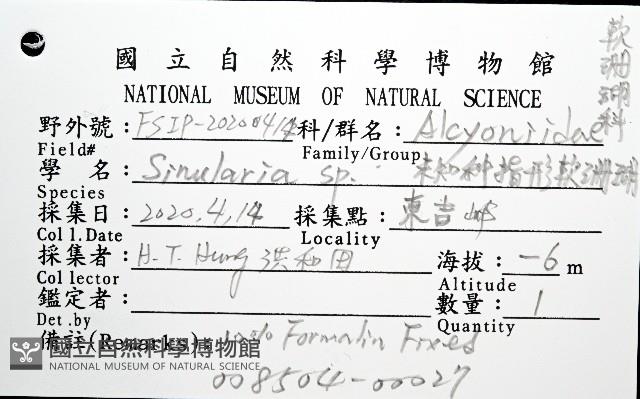 國立自然科學博物館
NATIONAL MUSEUM OF NATURAL SCIENCE
軟珊瑚科
野外號：FSIP-20200414 科/群名：Alcyoniidae
Field# Family/Group
學名：Sinularia sp. 未知科指形軟珊瑚
Species
採集日：2020.4.14 採集點：東吉嶼
Coll.Date Locality
採集者：H.T. Hung 洪和田 海拔：-6 m
Collector Altitude
鑑定者： 數量：1
Det.by Quantity
備註(Remarks)：10% Formalin Fixed
國立自然科學博物館
NATIONAL MUSEUM OF NATURAL SCIENCE
008504-00027